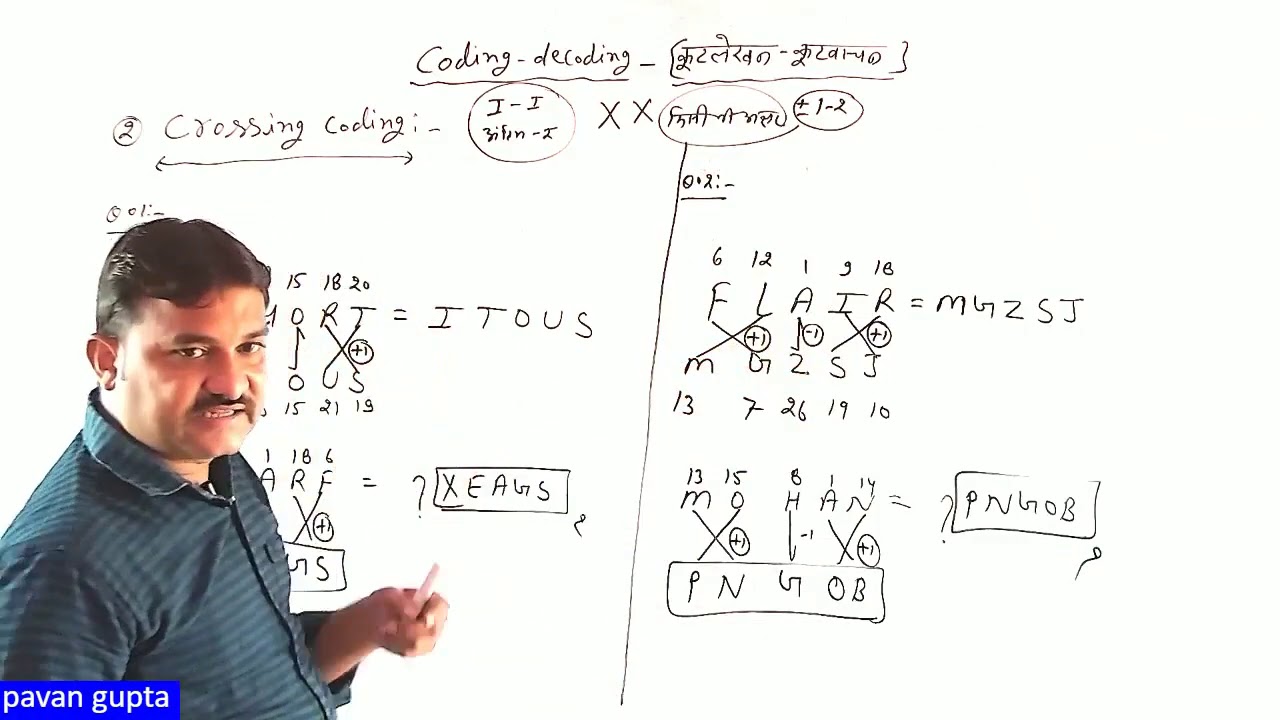 Coding-decoding - [कूटलेखन-कूटवाचन]
② Crossing Coding:- I-I X X ±1-2
Q.01:-
15 18 20
O R T = I T O U S
+1
O U S
15 21 19
1 18 6
A R F = ? XEAGS
+1
G S
Q.2:-
6 12 1 9 18
F L A I R = M G Z S J
+1 -1 +1
M G Z S J
13 7 26 19 10
13 15 8 1 14
M O H A N = ? PNGOB
+1 -1 +1
P N G O B
pavan gupta